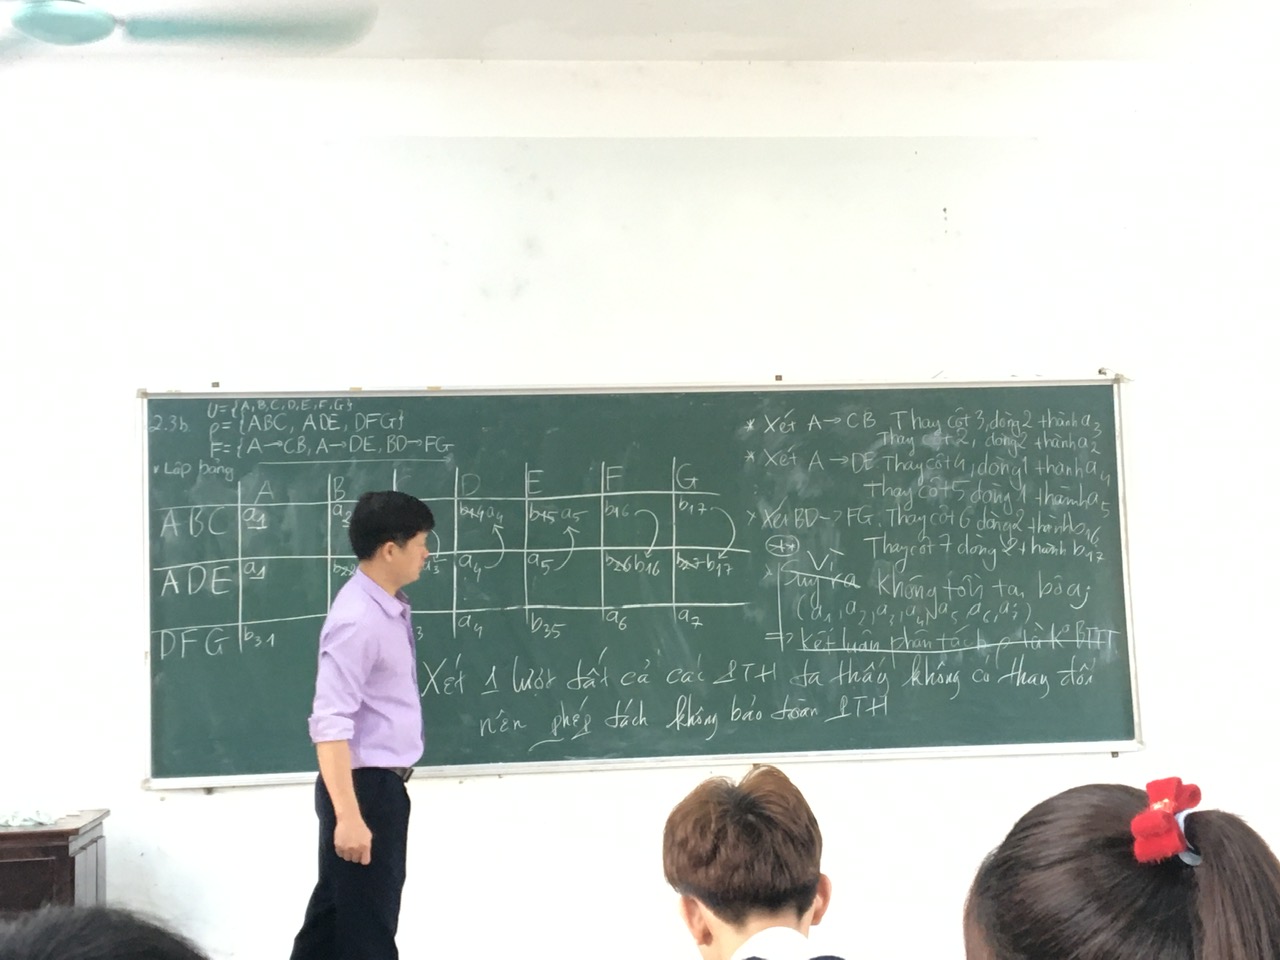 2.3b U={A,B,C,D,E,F,G}
ρ={ABC, ADE, DFG}
F={A→CB, A→DE, BD→FG
* Lập bảng
A B D E F G
ABC a1 a2 b14 a4 b15 a5 b16 b17
ADE a1 b22 a3 a4 a5 b26 b16 b27 b17
DFG b31 3 a4 b35 a6 a7
* Xét A→CB. Thay cột 3, dòng 2 thành a3
Thay cột 2, dòng 2 thành a2
* Xét A→DE. Thay cột 4, dòng 1 thành a4
Thay cột 5 dòng 1 thành a5
* Xét BD→FG. Thay cột 6 dòng 2 thành b16
Thay cột 7 dòng 2 thành b17
** Vì
* Suy ra không tồn tại bộ aj
(a1, a2, a3, a4, a5, a6, a7)
=> kết luận phân tách ρ là K° BTTT
Xét 1 lượt tất cả các PTH ta thấy không có thay đổi
nên phép tách không bảo toàn PTH